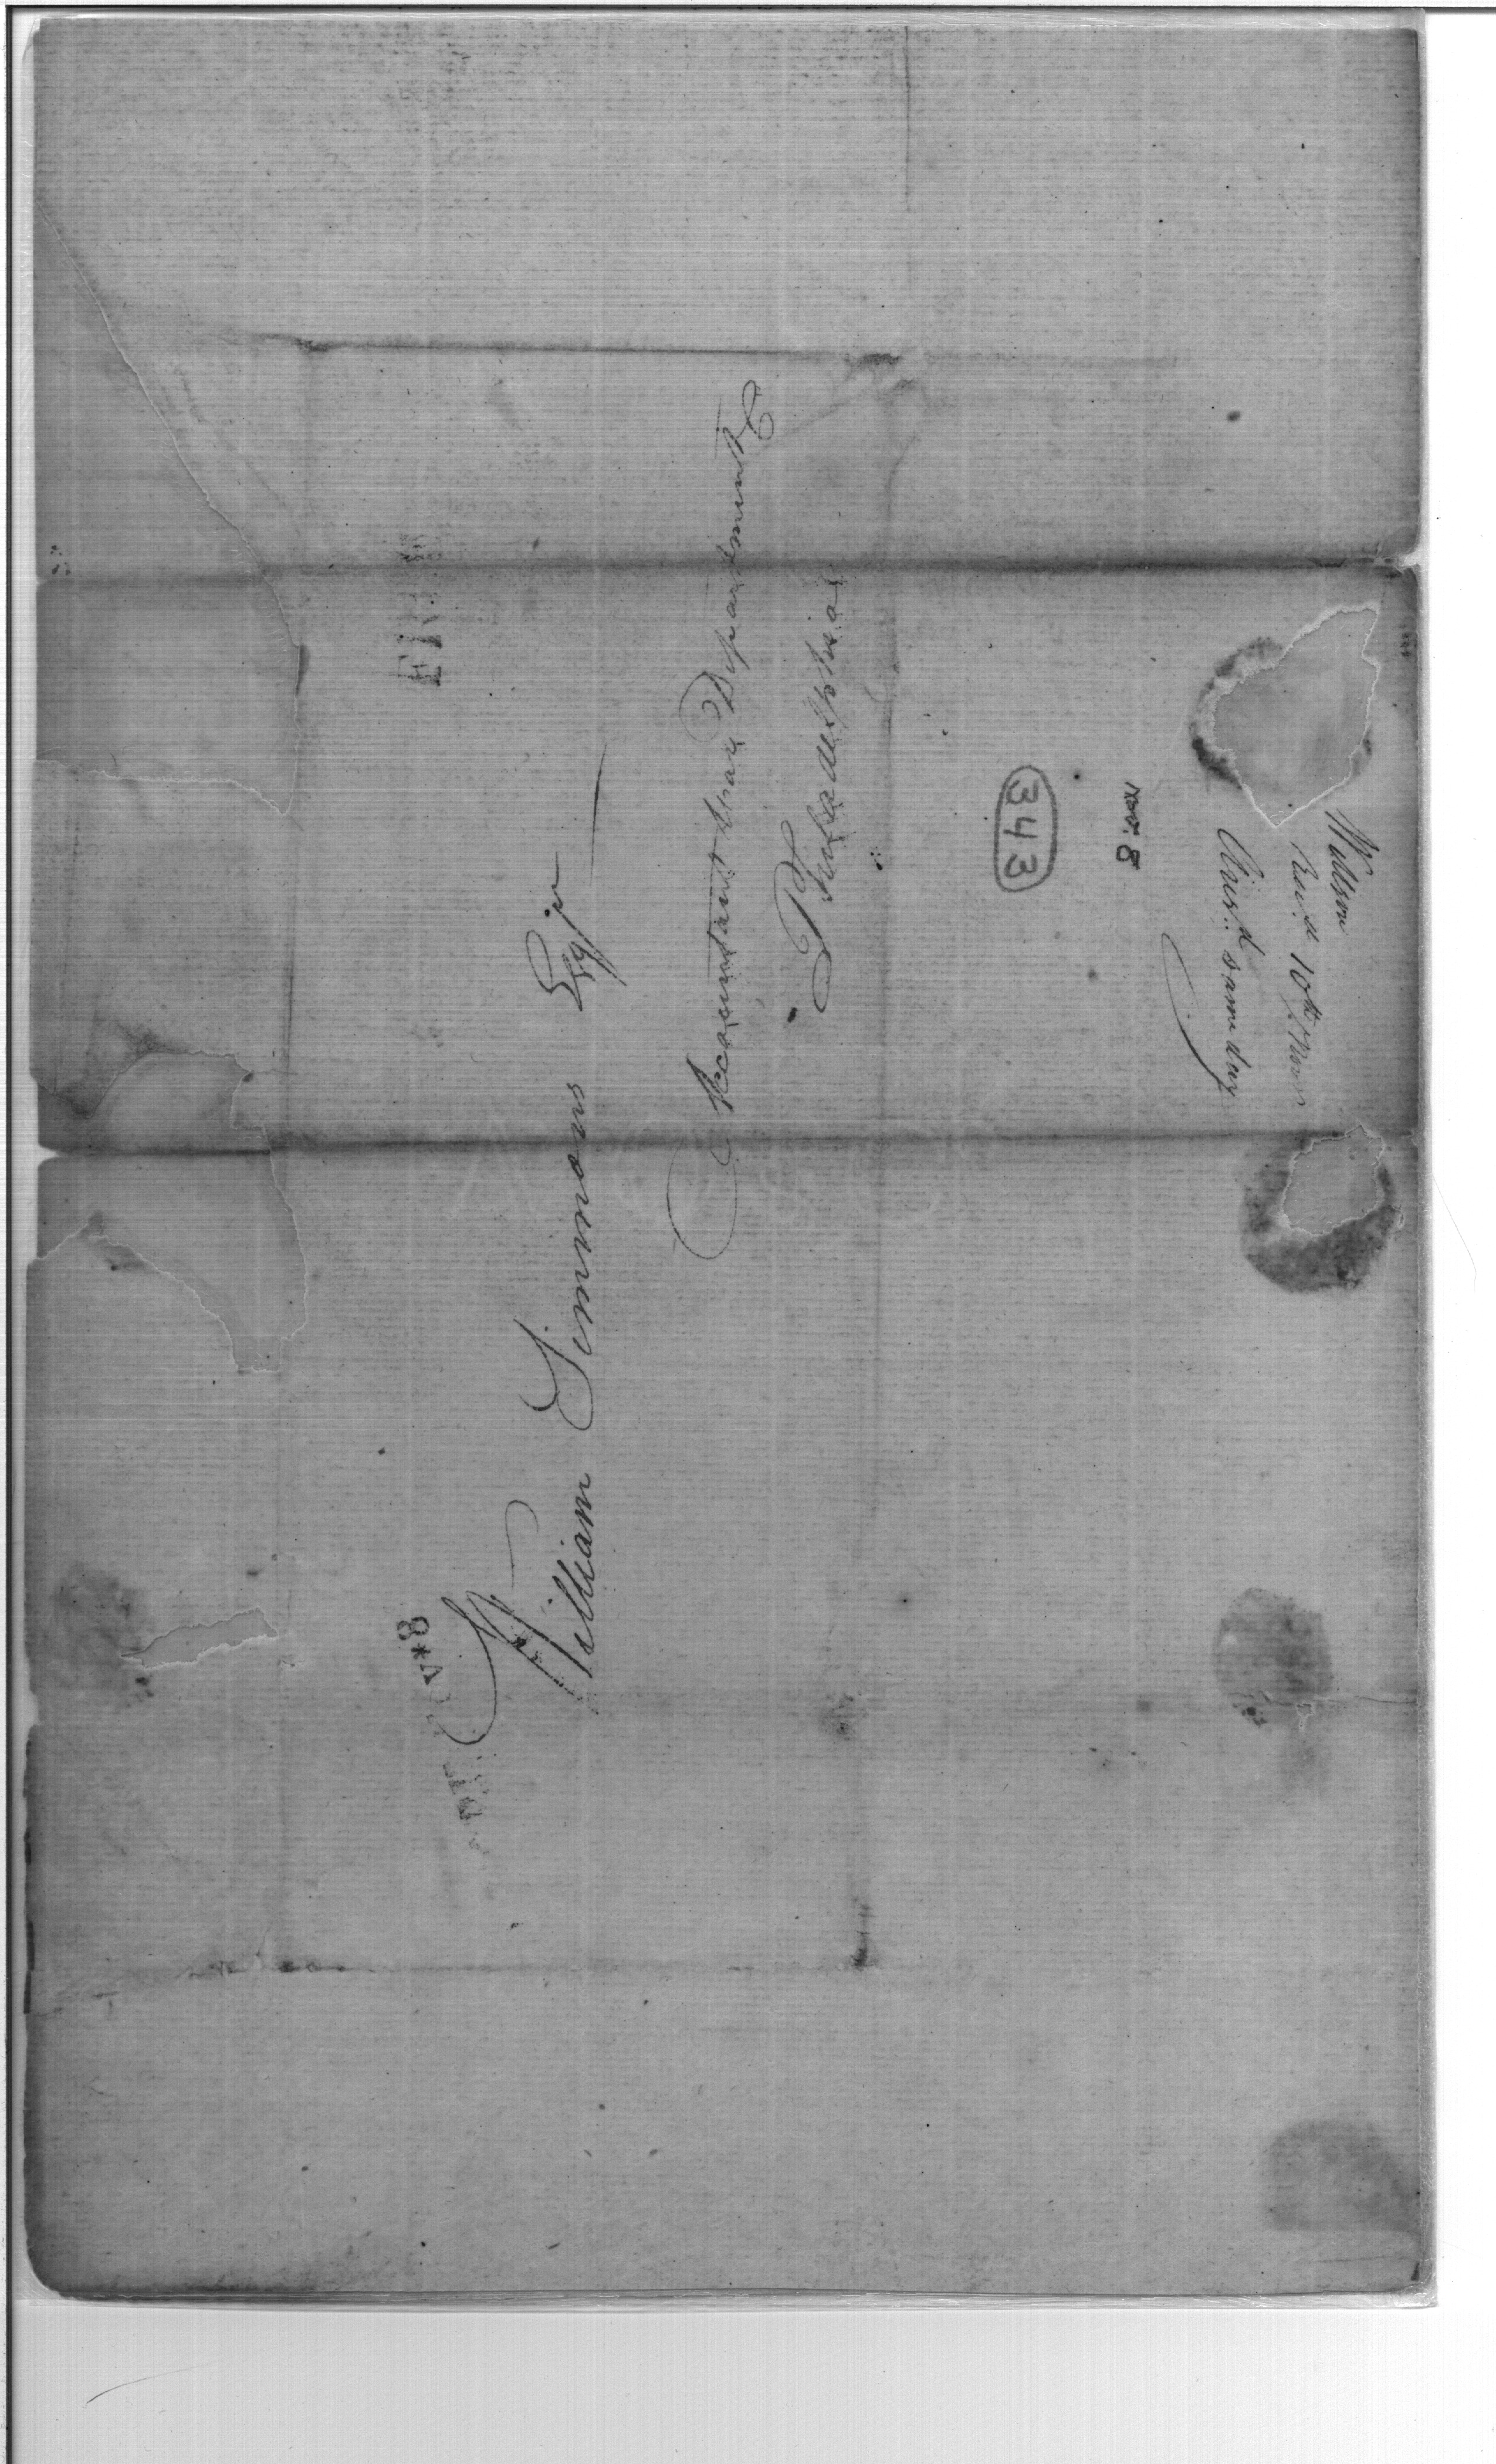 FREE
v*8
William Simmons Esqr
Accountant War Department
Philadelphia
343
Nov. 8
Willson
Recd 10th Novr
Ansd same day